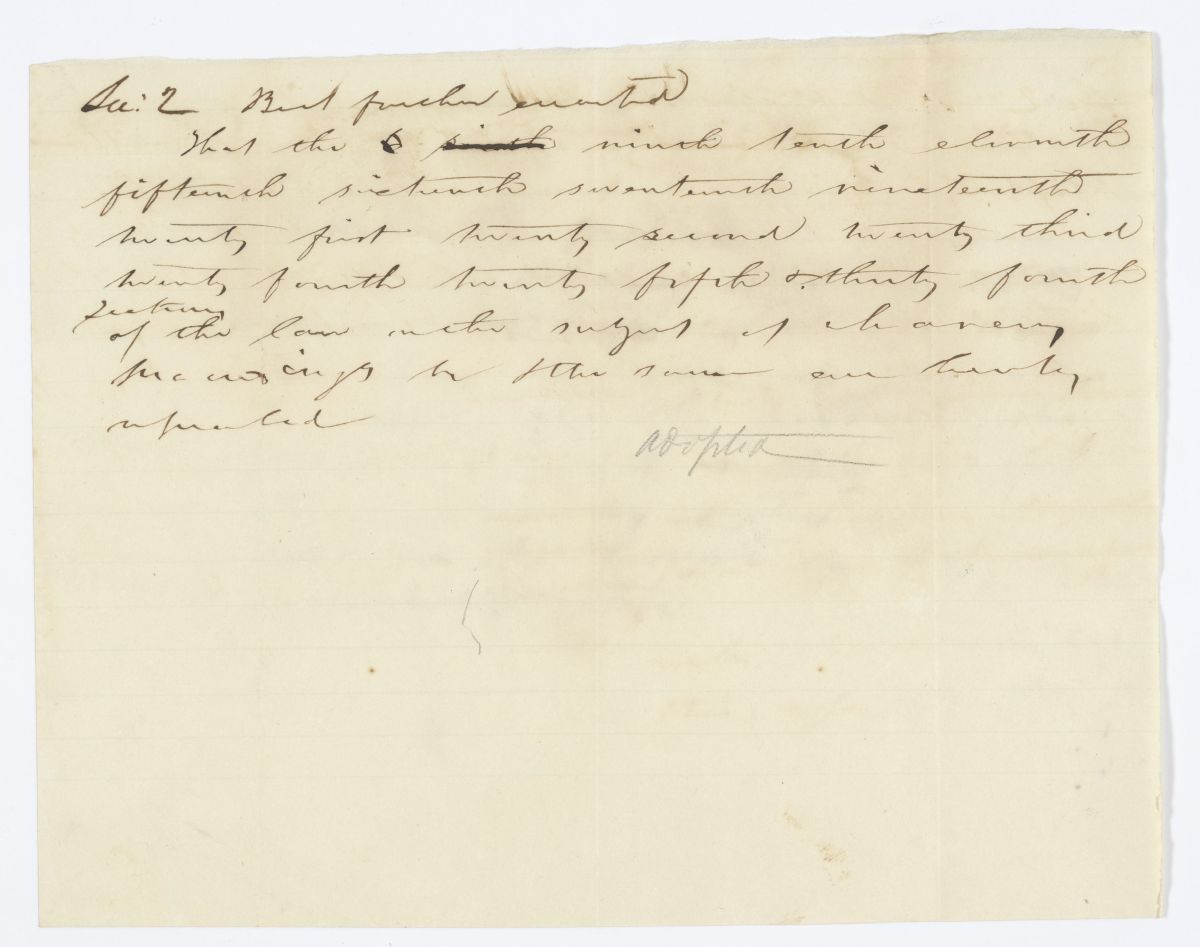 Sec: 2 Be it further enacted
That the ninth tenth eleventh
fifteenth sixteenth seventeenth nineteenth
twenty first twenty second twenty third
twenty fourth twenty fifth & thirty fourth
sections
of the law on the subject of
be & the same are hereby
repealed
adopted